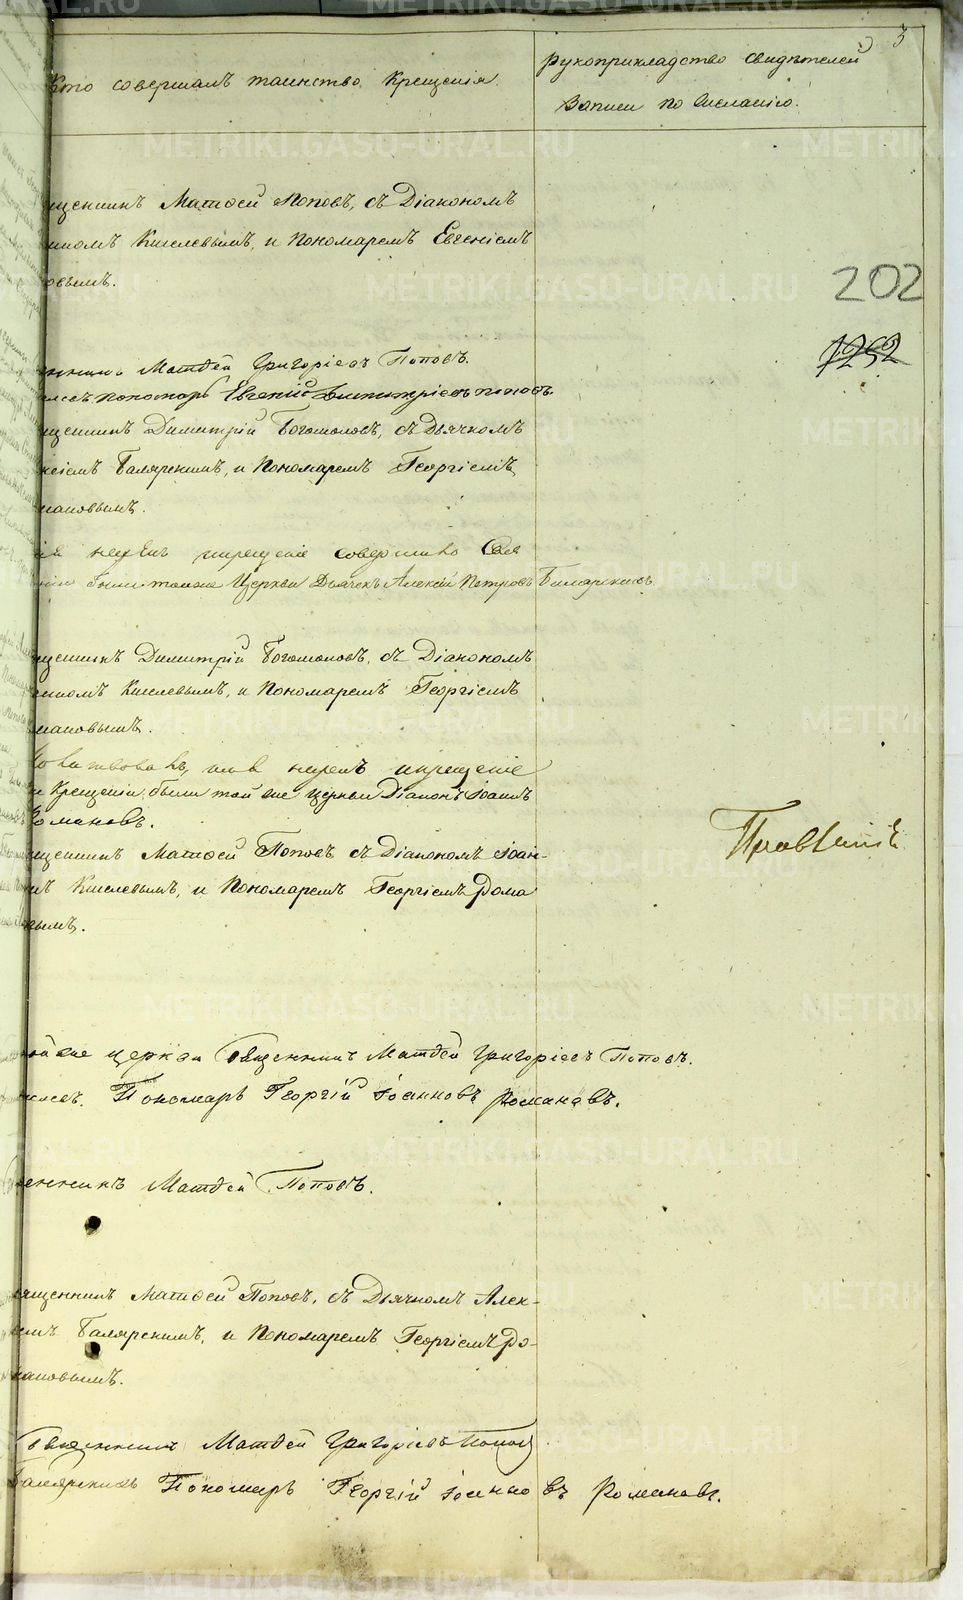 3
Кто совершалъ таинство Крещенія.
Рукоприкладство свидѣтелей
записи по желанію.
щенникъ Матѳей Поповъ, съ Діакономъ
Киселевымъ, и Пономаремъ Евгеніемъ
овымъ.
202
7252
Матѳей Григоріевъ Поповъ.
пономарь Евгеній Димитріевъ Поповъ.
щенникъ Димитрій Богомоловъ, съ Дьячкомъ
ксіемъ Балярскимъ, и Пономаремъ Георгіемъ
мановымъ.
крещеніе совершалъ
были тоиже Церкви Дьячекъ Алексѣй Петровъ Балярскихъ
щенникъ Димитрій Богомоловъ, съ Діакономъ
анномъ Киселевымъ, и Пономаремъ Георгіемъ
мановымъ.
крещеніе
Крещеніи были той же церкви Діаконъ Іоаннъ
Романовъ.
щенникъ Матѳей Поповъ съ Діакономъ Іоан-
мъ Киселевымъ, и Пономаремъ Георгіемъ Рома
вымъ.
той же церкви Священникъ Матѳей Григоріевъ Поповъ.
Пономарь Георгій Іоанновъ Романовъ.
щенникъ Матѳей Поповъ.
вященникъ Матѳей Поповъ, съ Дьячкомъ Алек-
сіемъ Балярскимъ, и Пономаремъ Георгіемъ Ро-
мановымъ.
Священникъ Матѳей Григоріевъ Поповъ
Балярскихъ Пономарь Георгій Іоанновъ Романовъ.
METRIKI.GASO-URAL.RU